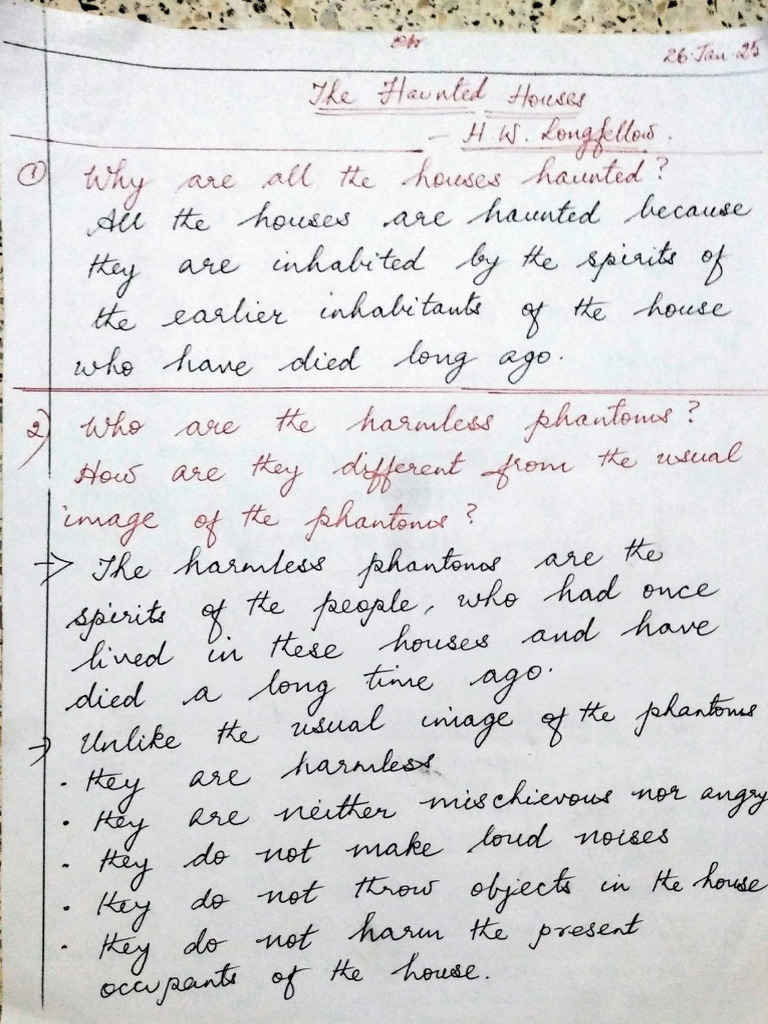 26-Jan-25
The Haunted Houses
- H W. Longfellow.
① Why are all the houses haunted?
All the houses are haunted because
they are inhabited by the spirits of
the earlier inhabitants of the house
who have died long ago.
2) Who are the harmless phantoms?
How are they different from the usual
image of the phantoms?
→ The harmless phantoms are the
spirits of the people, who had once
lived in these houses and have
died a long time ago.
→ Unlike the usual image of the phantoms
· they are harmless
· they are neither mischievous nor angry
· they do not make loud noises
· they do not throw objects in the house
· they do not harm the present
occupants of the house.